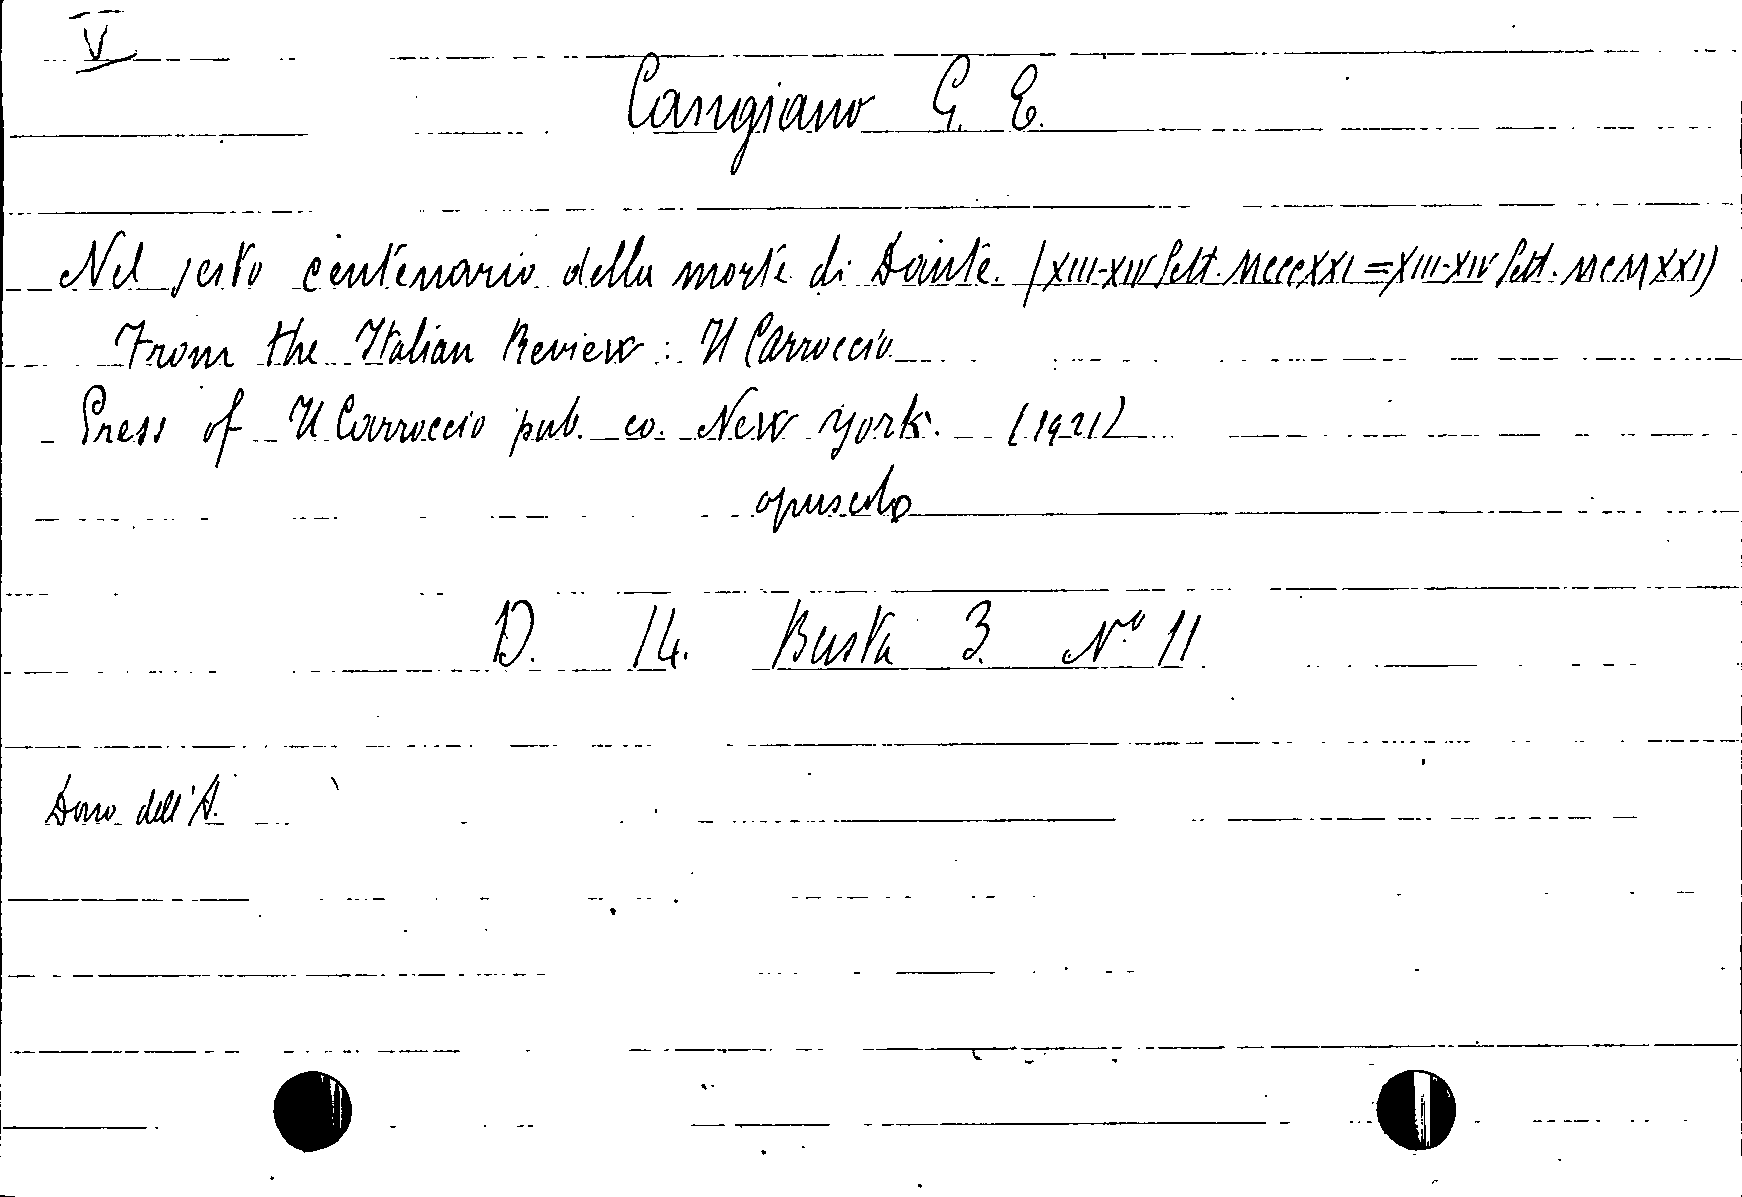 V
Cangiano G. E.
Nel sesto centenario della morte di Dante. (XIII-XIV Sett. MCCCXXI = XIII-XIV Sett. MCMXXI)
From the Italian Review: Il Carroccio
Press of Il Carroccio pub. co. New York. (1921)
opuscolo
D. 14. Busta 3. Nº 11
Dono dell'A.